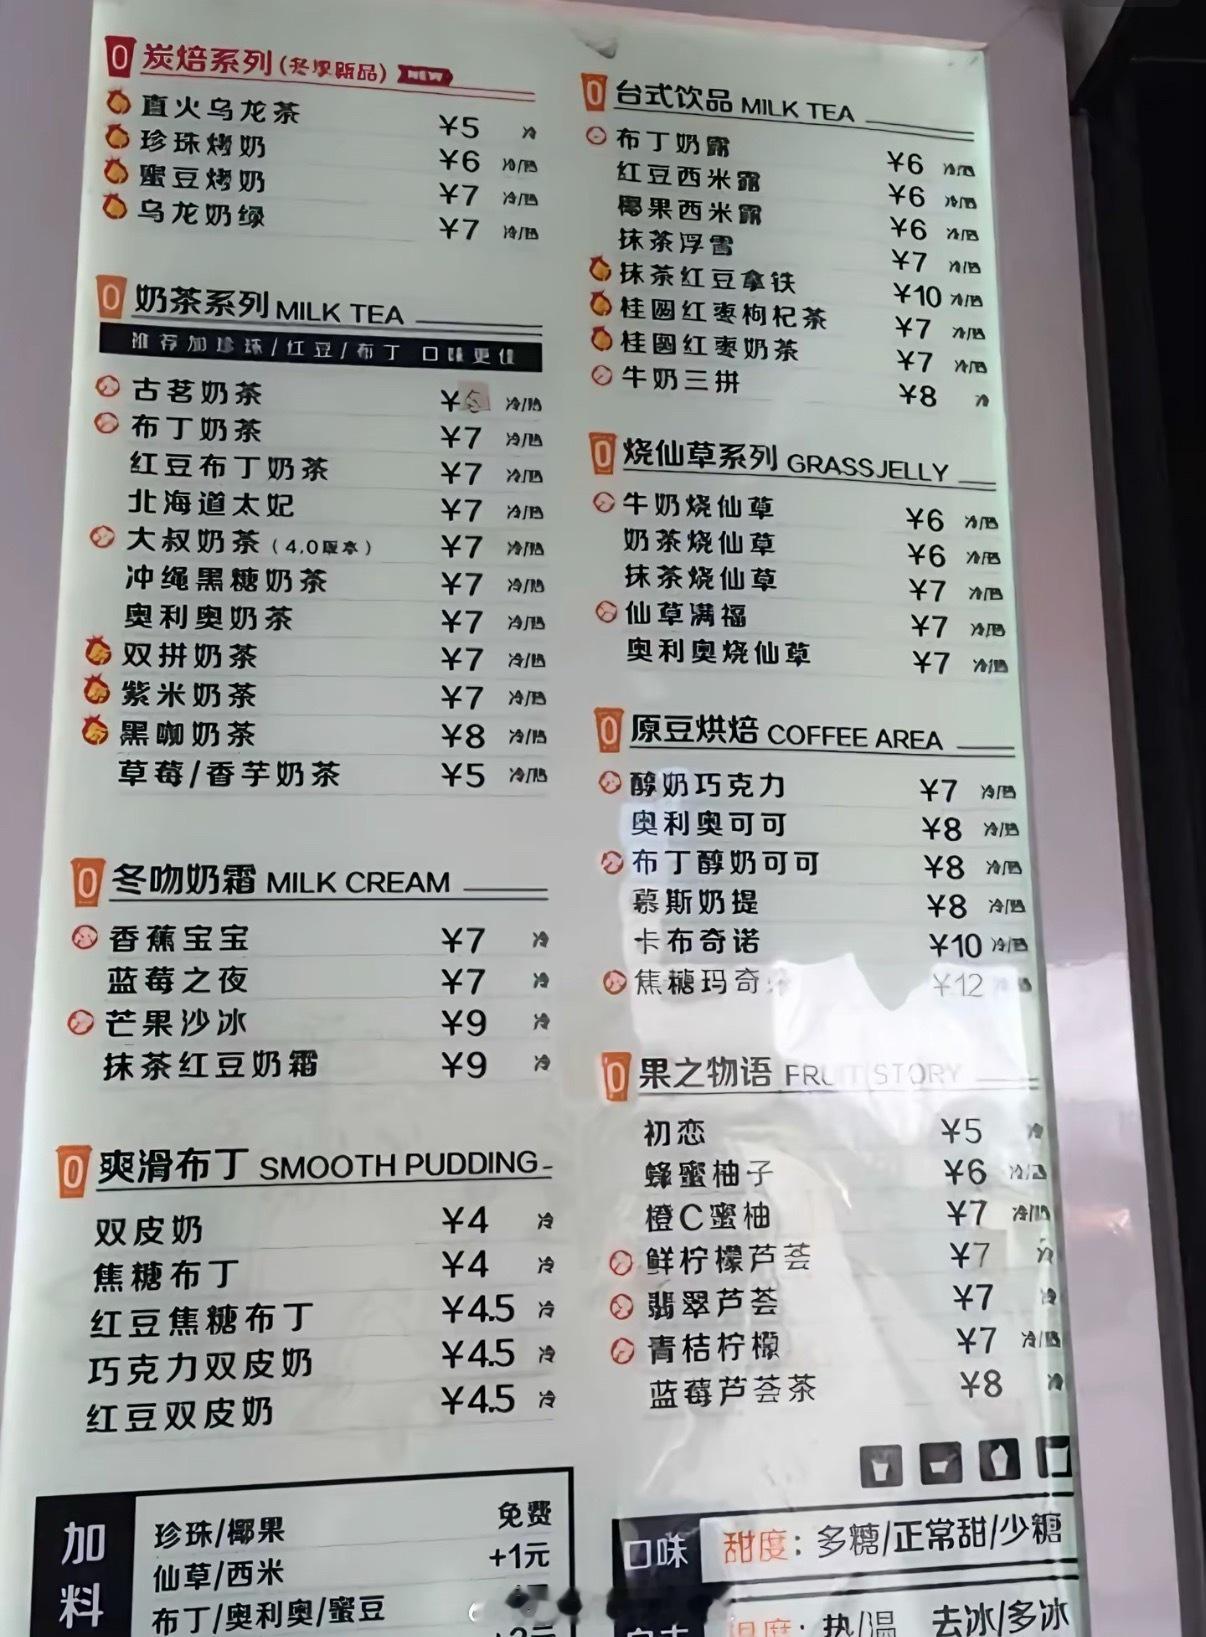 炭焙系列(冬季新品) NEW
直火乌龙茶 ¥5 冷
珍珠烤奶 ¥6 冷/热
蜜豆烤奶 ¥7 冷/热
乌龙奶绿 ¥7 冷/热
奶茶系列 MILK TEA
推荐加珍珠/红豆/布丁 口味更佳
古茗奶茶 ¥ 冷/热
布丁奶茶 ¥7 冷/热
红豆布丁奶茶 ¥7 冷/热
北海道太妃 ¥7 冷/热
大叔奶茶(4.0版本) ¥7 冷/热
冲绳黑糖奶茶 ¥7 冷/热
奥利奥奶茶 ¥7 冷/热
双拼奶茶 ¥7 冷/热
紫米奶茶 ¥7 冷/热
黑咖奶茶 ¥8 冷/热
草莓/香芋奶茶 ¥5 冷/热
冬吻奶霜 MILK CREAM
香蕉宝宝 ¥7 冷
蓝莓之夜 ¥7 冷
芒果沙冰 ¥9 冷
抹茶红豆奶霜 ¥9 冷
爽滑布丁 SMOOTH PUDDING
双皮奶 ¥4 冷
焦糖布丁 ¥4 冷
红豆焦糖布丁 ¥4.5 冷
巧克力双皮奶 ¥4.5 冷
红豆双皮奶 ¥4.5 冷
加料
珍珠/椰果 免费
仙草/西米 +1元
布丁/奥利奥/蜜豆
台式饮品 MILK TEA
布丁奶露 ¥6 冷/热
红豆西米露 ¥6 冷/热
椰果西米露 ¥6 冷/热
抹茶浮雪 ¥7 冷/热
抹茶红豆拿铁 ¥10 冷/热
桂圆红枣枸杞茶 ¥7 冷/热
桂圆红枣奶茶 ¥7 冷/热
牛奶三拼 ¥8 冷
烧仙草系列 GRASSJELLY
牛奶烧仙草 ¥6 冷/热
奶茶烧仙草 ¥6 冷/热
抹茶烧仙草 ¥7 冷/热
仙草满福 ¥7 冷/热
奥利奥烧仙草 ¥7 冷/热
原豆烘焙 COFFEE AREA
醇奶巧克力 ¥7 冷/热
奥利奥可可 ¥8 冷/热
布丁醇奶可可 ¥8 冷/热
慕斯奶提 ¥8 冷/热
卡布奇诺 ¥10 冷/热
焦糖玛奇 ¥12
果之物语 FRUIT STORY
初恋 ¥5 冷
蜂蜜柚子 ¥6 冷/热
橙C蜜柚 ¥7 冷/热
鲜柠檬芦荟 ¥7 冷
翡翠芦荟 ¥7 冷
青桔柠檬 ¥7 冷/热
蓝莓芦荟茶 ¥8 冷
口味 甜度：多糖/正常甜/少糖
温度：热/温 去冰/多冰